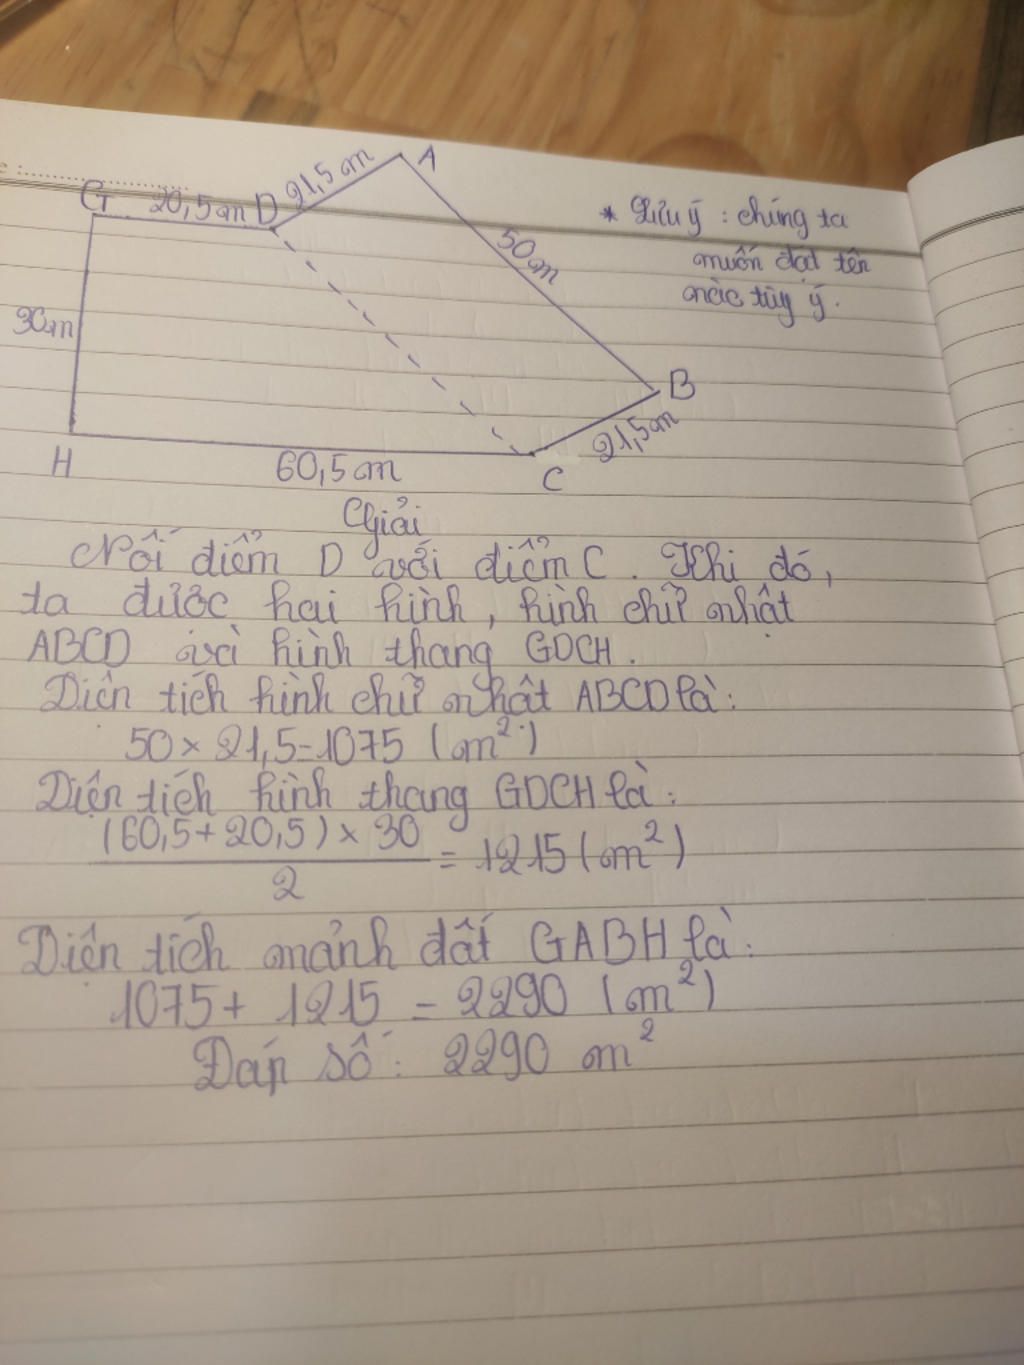 G 20,5m D 21,5m A
* Lưu ý : chúng ta
muốn đặt tên
nào tùy ý.
50m
30m
B
21,5m
H 60,5m C
Giải
Nối điểm D với điểm C. Khi đó,
ta được hai hình, hình chữ nhật
ABCD và hình thang GDCH.
Diện tích hình chữ nhật ABCD là:
50 × 21,5 = 1075 (m²)
Diện tích hình thang GDCH là:
(60,5 + 20,5) × 30
= 1215 (m²)
2
Diện tích mảnh đất GABH là:
1075 + 1215 = 2290 (m²)
Đáp số: 2290 m²